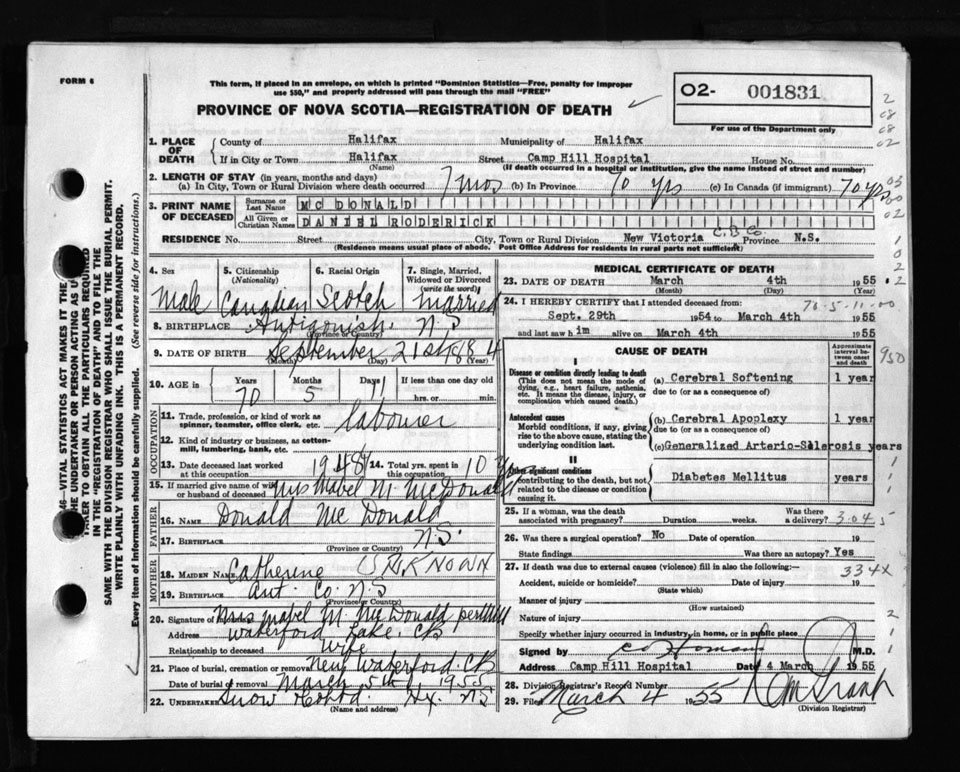 FORM 6
This form, if placed in an envelope, on which is printed "Dominion Statistics—Free, penalty for improper
use $50," and properly addressed will pass through the mail "FREE"
PROVINCE OF NOVA SCOTIA—REGISTRATION OF DEATH
O2- 001831
For use of the Department only
1. PLACE OF DEATH
County of Halifax Municipality of Halifax
If in City or Town Halifax (Name) Street Camp Hill Hospital House No.
(If death occurred in a hospital or institution, give the name instead of street and number)
2. LENGTH OF STAY (in years, months and days)
(a) In City, Town or Rural Division where death occurred 7 mos (b) In Province 70 yrs (c) In Canada (if immigrant) 70 yrs
3. PRINT NAME OF DECEASED
Surname or Last Name MC DONALD
All Given or Christian Names DANIEL RODERICK
RESIDENCE No. Street City, Town or Rural Division New Victoria C.B Co. Province N.S.
(Residence means usual place of abode. Post Office Address for residents in rural parts not sufficient)
4. Sex Male
5. Citizenship (Nationality) Canadian
6. Racial Origin Scotch
7. Single, Married, Widowed or Divorced (write the word) Married
8. BIRTHPLACE Antigonish, N.S (Province or Country)
9. DATE OF BIRTH September 21st 1884
(Month) (Day) (Year)
10. AGE in Years 70 Months 5 Days If less than one day old hrs. or min.
OCCUPATION
11. Trade, profession, or kind of work as spinner, teamster, office clerk, etc. labourer
12. Kind of industry or business, as cotton-mill, lumbering, bank, etc.
13. Date deceased last worked at this occupation 1948
14. Total yrs. spent in this occupation 10 yrs
15. If married give name of wife or husband of deceased Mrs Mabel M. McDonald
FATHER
16. NAME Donald McDonald
17. BIRTHPLACE N.S. (Province or Country)
MOTHER
18. MAIDEN NAME Catherene UNKNOWN
19. BIRTHPLACE Ant. Co. N.S (Province or Country)
20. Signature of Mrs Mabel M. McDonald per
Address Waterford Lake, CB
Relationship to deceased Wife
21. Place of burial, cremation or removal New Waterford. CB
Date of burial or removal March 5th 1955
22. UNDERTAKER Snow Hx. NS
(Name and address)
MEDICAL CERTIFICATE OF DEATH
23. DATE OF DEATH March 4th 1955
(Month) (Day) (Year)
24. I HEREBY CERTIFY that I attended deceased from: 70-5-11-00
Sept. 29th 1954 to March 4th 1955
and last saw him alive on March 4th 1955
CAUSE OF DEATH
Approximate interval between onset and death
950
I
Disease or condition directly leading to death
(This does not mean the mode of dying, e.g., heart failure, asthenia, etc. It means the disease, injury, or complication which caused death.)
(a) Cerebral Softening 1 year
due to (or as a consequence of)
Antecedent causes
Morbid conditions, if any, giving rise to the above cause, stating the underlying condition last.
(b) Cerebral Apoplexy 1 year
due to (or as a consequence of)
(c) Generalized Arterio-Sclerosis years
II
Other significant conditions
contributing to the death, but not related to the disease or condition causing it.
Diabetes Mellitus years
25. If a woman, was the death associated with pregnancy? Duration weeks. Was there a delivery? 304
26. Was there a surgical operation? No Date of operation 19
State findings Was there an autopsy? Yes
27. If death was due to external causes (violence) fill in also the following: 334X
Accident, suicide or homicide? Date of injury 19
(State which)
Manner of injury
(How sustained)
Nature of injury
Specify whether injury occurred in industry, in home, or in public place
Signed by M.D.
Address Camp Hill Hospital Date 4 March 1955
28. Division Registrar's Record Number
29. Filed March 4 1955
(Division Registrar)
VITAL STATISTICS ACT MAKES IT THE
THE UNDERTAKER OR PERSON ACTING AS
TO OBTAIN ALL THE PARTICULARS REQUIRED
IN THE "REGISTRATION OF DEATH" AND TO FILE THE
SAME WITH THE DIVISION REGISTRAR WHO SHALL ISSUE THE BURIAL PERMIT.
WRITE PLAINLY WITH UNFADING INK. THIS IS A PERMANENT RECORD.
Every item of Information should be carefully supplied. (See reverse side for instructions.)